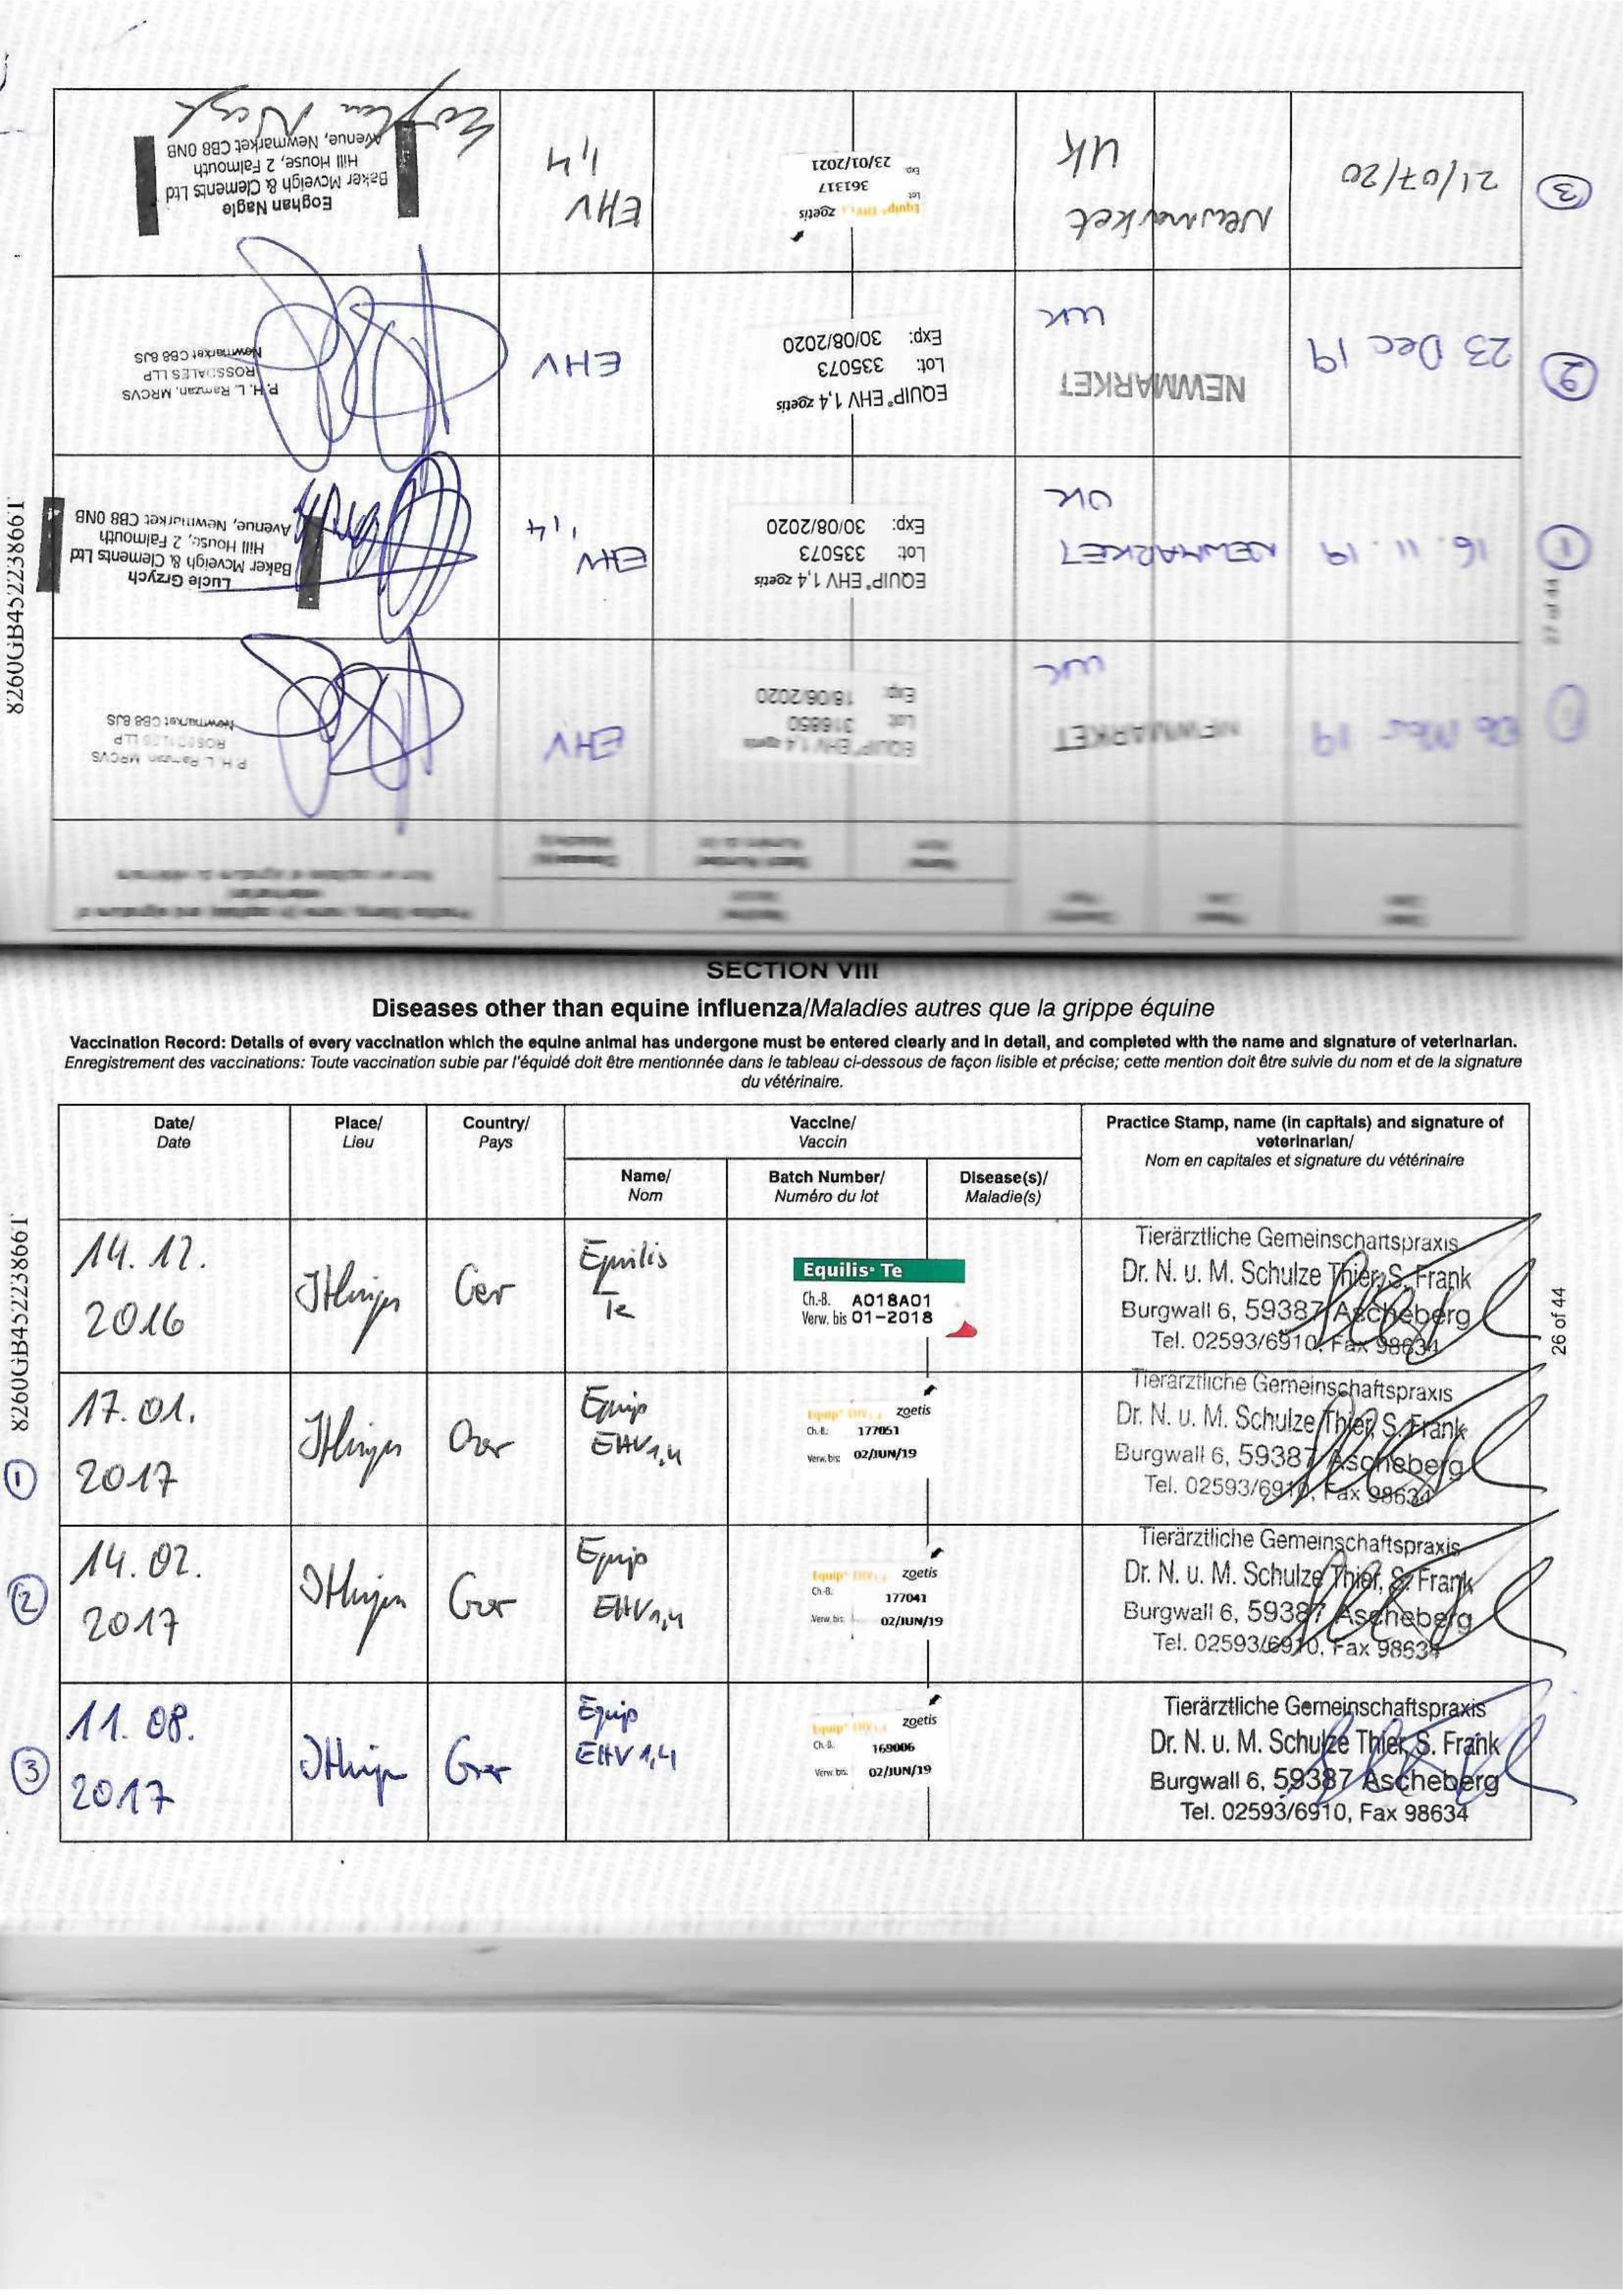 SECTION VIII
Diseases other than equine influenza/Maladies autres que la grippe équine
Vaccination Record: Details of every vaccination which the equine animal has undergone must be entered clearly and in detail, and completed with the name and signature of veterinarian.
Enregistrement des vaccinations: Toute vaccination subie par l'équidé doit être mentionnée dans le tableau ci-dessous de façon lisible et précise; cette mention doit être suivie du nom et de la signature
du vétérinaire.
Date/
Date
Place/
Lieu
Country/
Pays
Vaccine/
Vaccin
Name/
Nom
Batch Number/
Numéro du lot
Disease(s)/
Maladie(s)
Practice Stamp, name (in capitals) and signature of
veterinarian/
Nom en capitales et signature du vétérinaire
14.12.
2016
Ger
Equilis
Te
Equilis Te
Ch.-B. A018A01
Verw. bis 01-2018
Tierärztliche Gemeinschaftspraxis
Dr. N. u. M. Schulze Thier, S. Frank
Burgwall 6, 59387 Ascheberg
Tel. 02593/6910, Fax 98634
1
17.01.
2017
Ger
Equip
EHV 1,4
Equip EHV 1,4 zoetis
Ch.-B.: 177051
Verw. bis: 02/JUN/19
Tierärztliche Gemeinschaftspraxis
Dr. N. u. M. Schulze Thier, S. Frank
Burgwall 6, 59387 Ascheberg
Tel. 02593/6910, Fax 98634
2
14.02.
2017
Ger
Equip
EHV 1,4
Equip EHV 1,4 zoetis
Ch.-B. 177041
Verw. bis: 02/JUN/19
Tierärztliche Gemeinschaftspraxis
Dr. N. u. M. Schulze Thier, S. Frank
Burgwall 6, 59387 Ascheberg
Tel. 02593/6910, Fax 98634
3
11.08.
2017
Ger
Equip
EHV 1,4
Equip EHV 1,4 zoetis
Ch.-B. 169006
Verw. bis: 02/JUN/19
Tierärztliche Gemeinschaftspraxis
Dr. N. u. M. Schulze Thier, S. Frank
Burgwall 6, 59387 Ascheberg
Tel. 02593/6910, Fax 98634
26 of 44
8260GB45223866T
06 Mar 19
NEWMARKET
UK
EQUIP EHV 1,4 zoetis
Lot: 316850
Exp: 18/06/2020
EHV
P.H.L. Ramzan MRCVS
ROSSDALES LLP
Newmarket CB8 8JS
1
16.11.19
NEWMARKET
UK
EQUIP EHV 1,4 zoetis
Lot: 335073
Exp: 30/08/2020
EHV
1,4
Lucie Grzych
Baker Mcveigh & Clements Ltd
Hill House, 2 Falmouth
Avenue, Newmarket CB8 0NB
2
23 Dec 19
NEWMARKET
UK
EQUIP EHV 1,4 zoetis
Lot: 335073
Exp: 30/08/2020
EHV
P.H.L. Ramzan, MRCVS
ROSSDALES LLP
Newmarket CB8 8JS
3
21/07/20
Newmarket
UK
Equip EHV 1,4 zoetis
Lot 361317
Exp 23/01/2021
EHV
1,4
Eoghan Nagle
Baker Mcveigh & Clements Ltd
Hill House, 2 Falmouth
Avenue, Newmarket CB8 0NB
Eoghan Nagle
27 of 44
8260GB45223866T